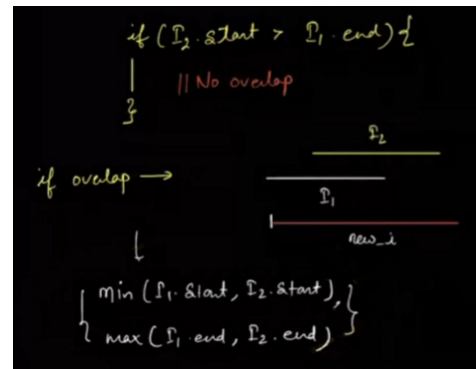 if (I2.start > I1.end) {
|| No overlap
}
I2
if overlap →
I1
new_i
{ min (I1.start, I2.start),
max (I1.end, I2.end) }